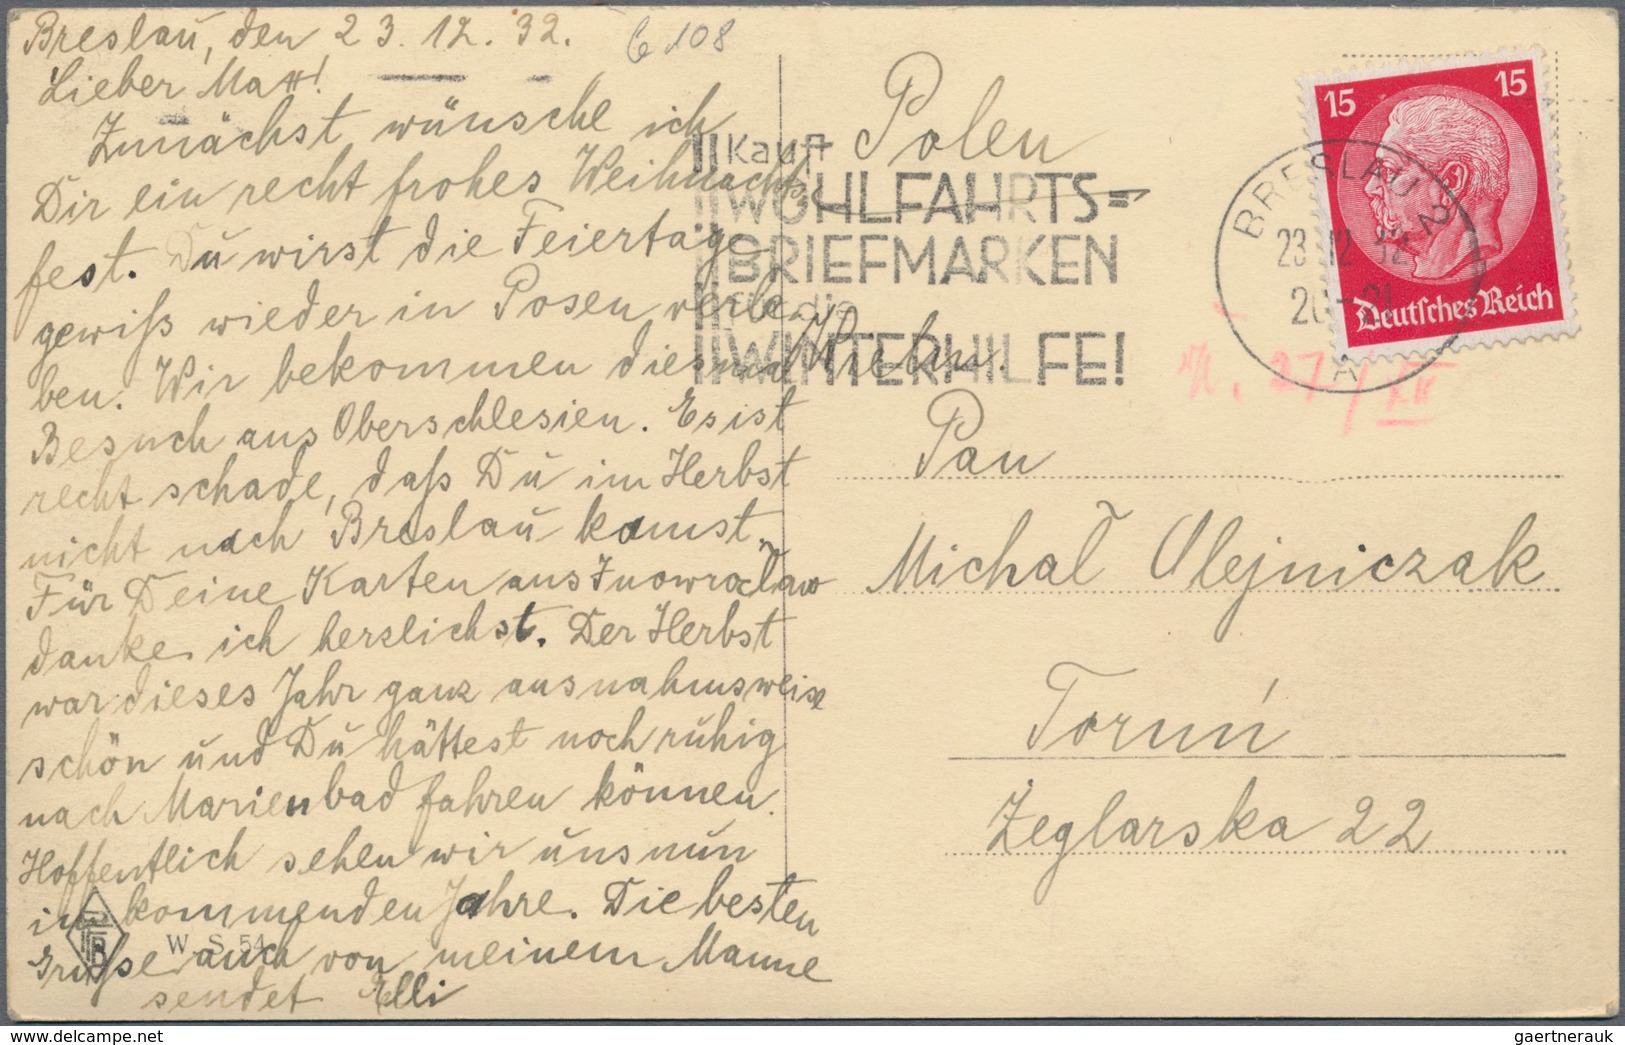 Breslau, den 23.12.32.
6 108
Lieber Matt!
Zunächst wünsche ich
Dir ein recht frohes Weihnachts=
fest. Du wirst die Feiertage
gewiß wieder in Posen verle-
ben. Wir bekommen diesmal
Besuch aus Oberschlesien. Es ist
recht schade, daß Du im Herbst
nicht nach Breslau kamst.
Für Deine Karten aus Inowrocław
danke ich herzlichst. Der Herbst
war dieses Jahr ganz ausnahmsweise
schön und Du hättest noch ruhig
nach Marienbad fahren können.
Hoffentlich sehen wir uns nun
im kommenden Jahre. Die besten
Grüße auch von meinem Manne
sendet Elli
W. S. 54
Polen
Kauft
WOHLFAHRTS=
BRIEFMARKEN
für die
WINTERHILFE!
BRESLAU 2
23.12.32
20-21
A
15 15
Deutsches Reich
27/XII
Pan
Michał Olejniczak
Toruń
Żeglarska 22
delcampe.net
gaertnerauk